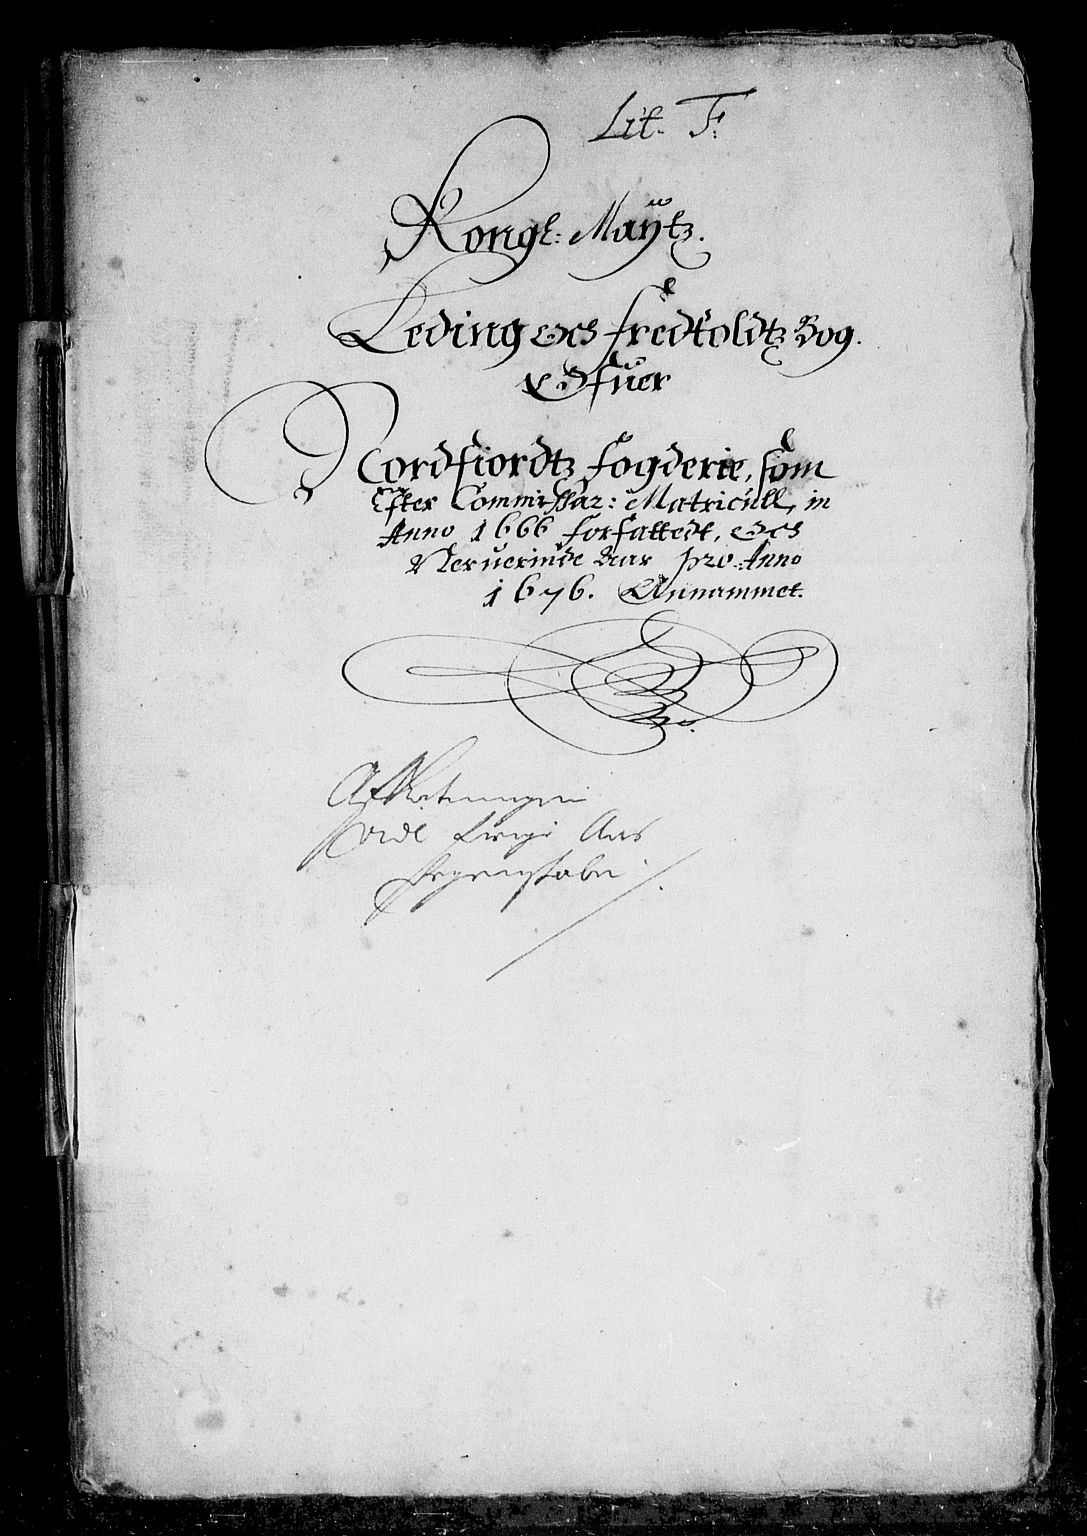 Lit. F:
Kongl: Maÿtz.
Leding och fredtoldtz Bog.
Offuer
Nordfiordtz fogderie, som
Efter Commissar: Matricull, in
Anno 1666 forfattedt, och
Neruerinde Aar pro Anno
1676. Annammet.